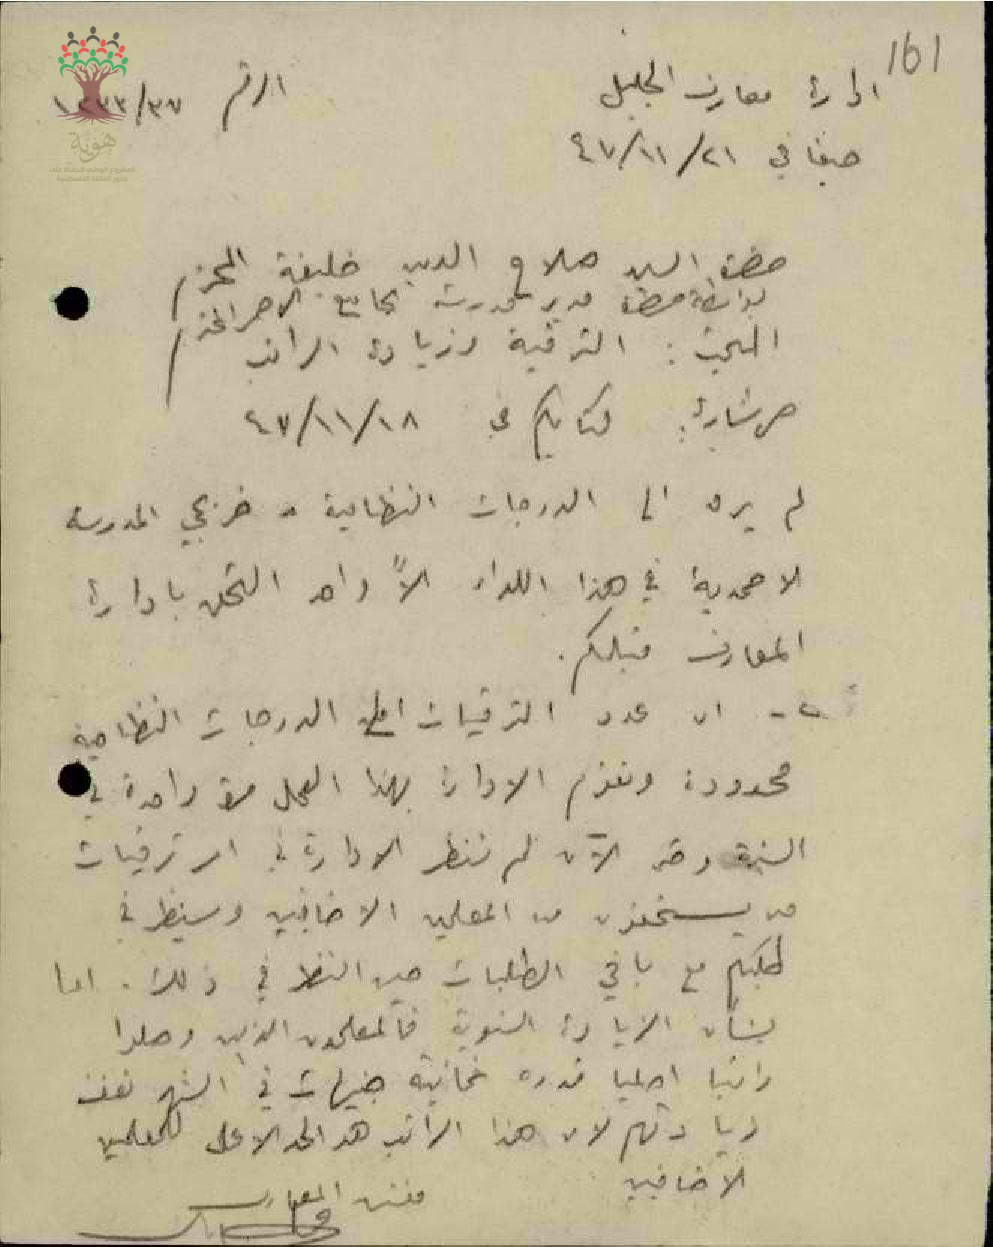 161
ادارة معارف الجليل
الرقم ١٢٣٣/٣٧
صيفا في ٢١/١١/٤٧
هوية
حضرة السيد صلاح الدين خليفة المحترم
بواسطة حضرة مدير مدرسة الاحمر المحترم
المبحث: الترقية وزيادة الراتب
كتابكم في ١٨/١١/٤٧
لم يرق الى الدرجات النظامية من خريجي المدرسة
الاحمدية في هذا اللواء الاّ واحد التحق بادارة
المعارف قبلكم.
٢- ان عدد الترقيات الى الدرجات النظامية
محدودة وتقوم الادارة بهذا العمل مرة واحدة في
السنة وحتى الآن لم تنظر الادارة في امر ترقيات
من يستحقون من المعلمين الاضافيين وسينظر في
طلبكم مع باقي الطلبات حين النظر في ذلك. اما
بشأن الزيادة السنوية فالمعلمون الذين وصلوا
راتبا اصليا قدره ثمانية جنيهات في الشهر تقف
زيادتهم لان هذا الراتب هو الحد الاعلى للمعلمين
الاضافيين
مفتش المعارف